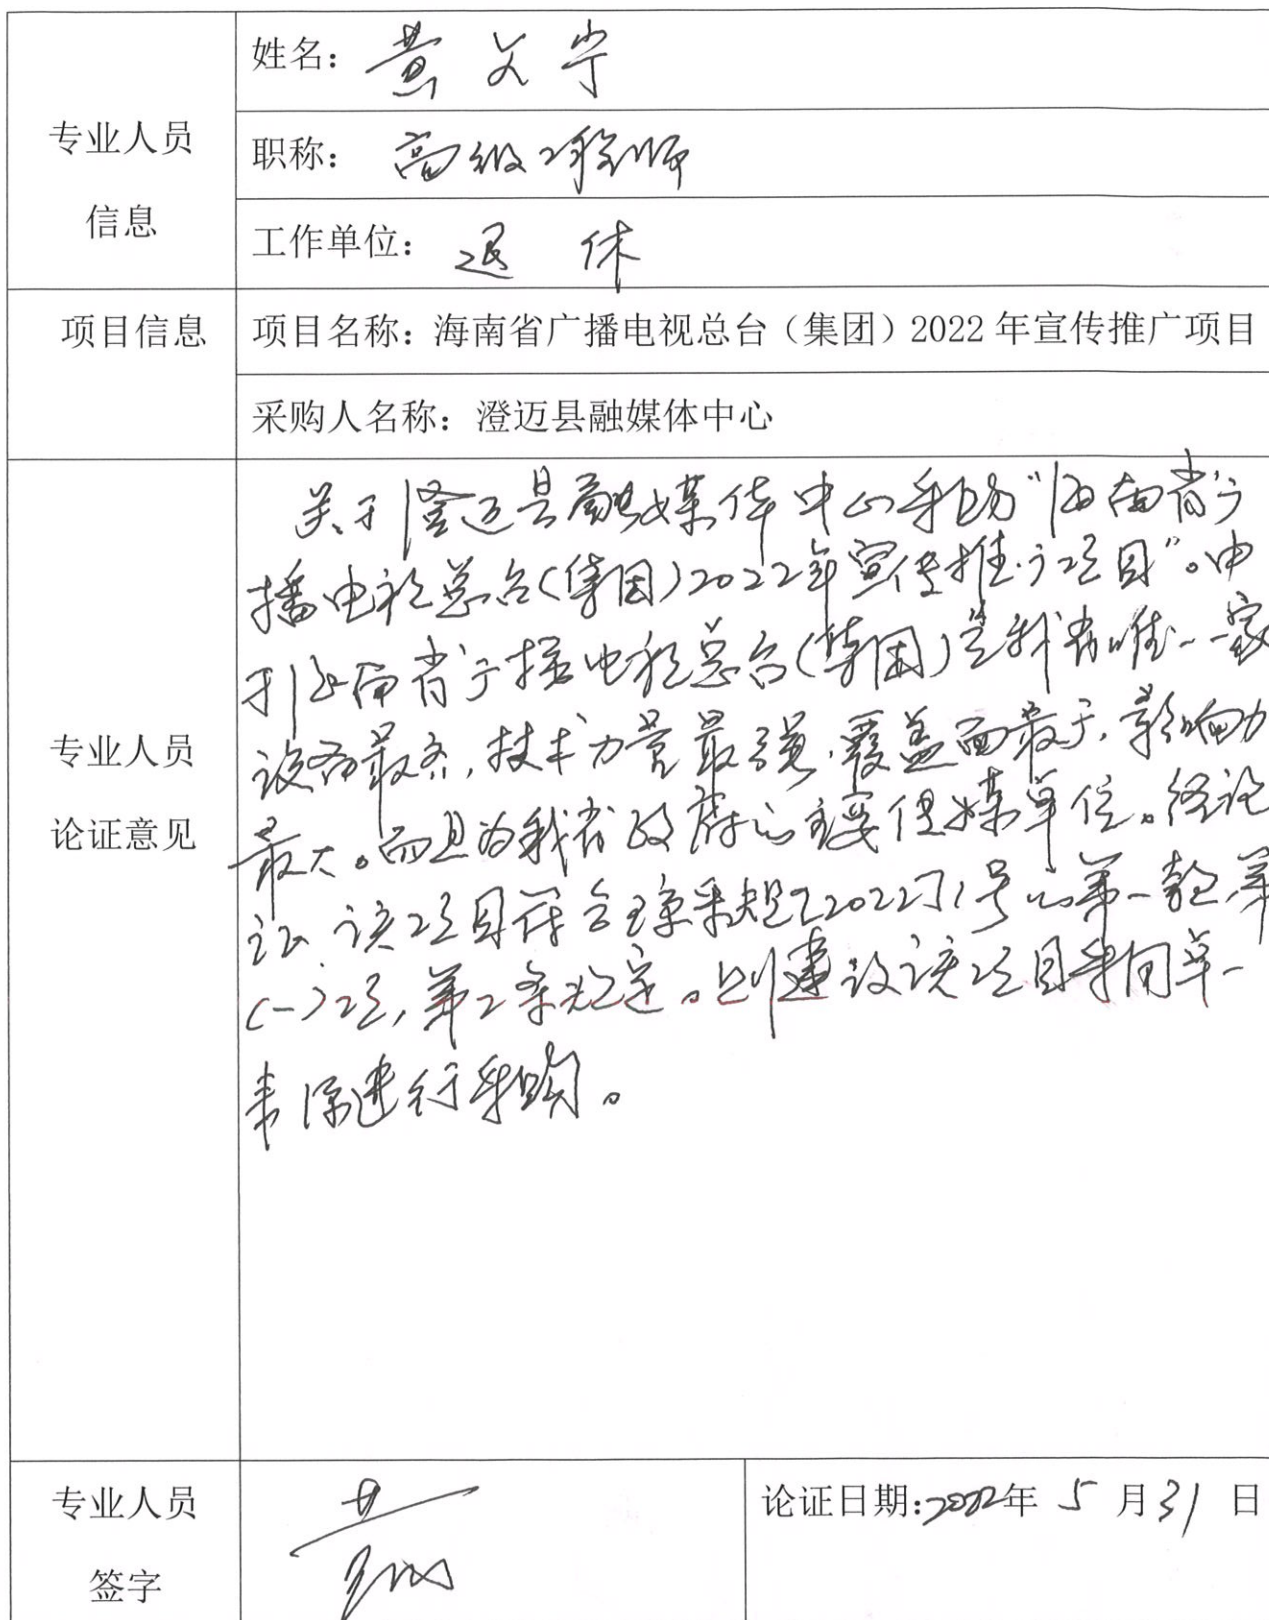 姓名：黄文宁
专业人员
信息
职称：高级工程师
工作单位：退休
项目信息
项目名称：海南省广播电视总台（集团）2022年宣传推广项目
采购人名称：澄迈县融媒体中心
专业人员
论证意见
关于澄迈县融媒体中心采购“海南省广
播电视总台(集团)2022年宣传推广项目”。由
于海南省广播电视总台(集团)是我省唯一一家
设备最齐，技术力量最强，覆盖面最广，影响力
最大。而且为我省政府的主要传媒单位。经论
证，该项目符合琼采规[2022]1号的第一款，第
(一)项，第2条规定。则建议该项目采用单一
来源进行采购。
专业人员
签字
论证日期:2022年5月31日